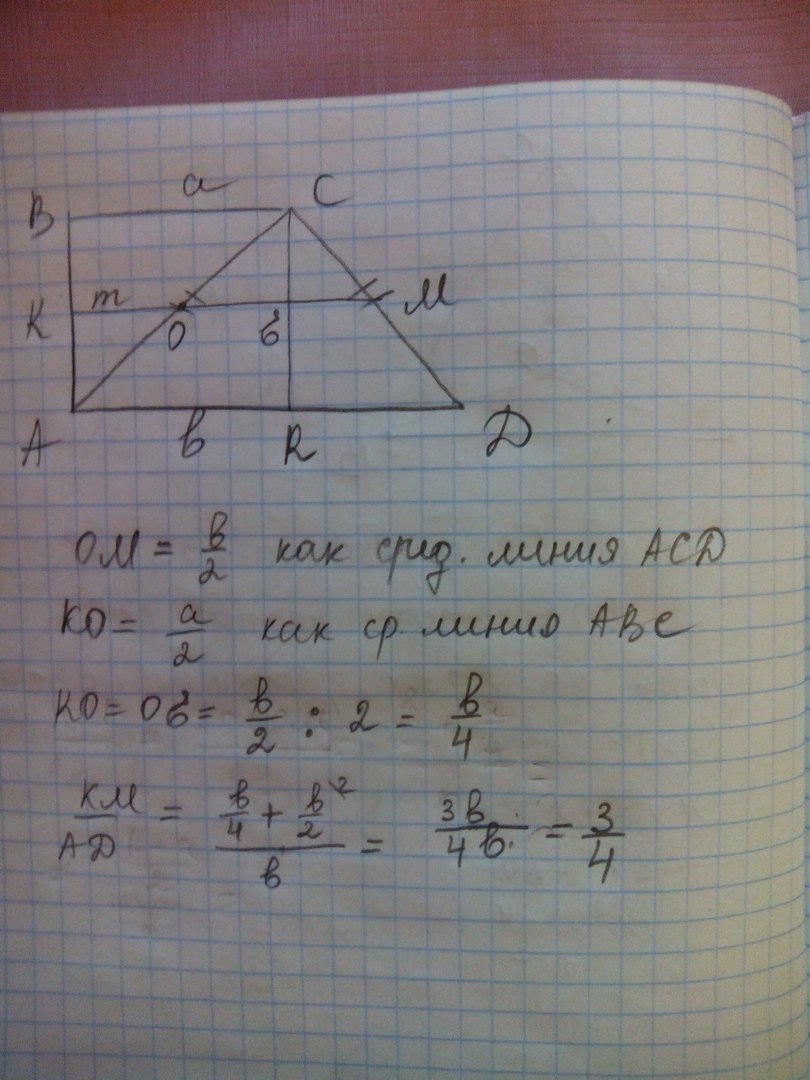 a
B C
K m O б M
A в R D
OM = в/2 как сред. линия ACD
KO = a/2 как ср. линия ABC
KO = Oб = в/2 : 2 = в/4
KM/AD = (в/4 + в/2 ²)/в = 3в/4в = 3/4